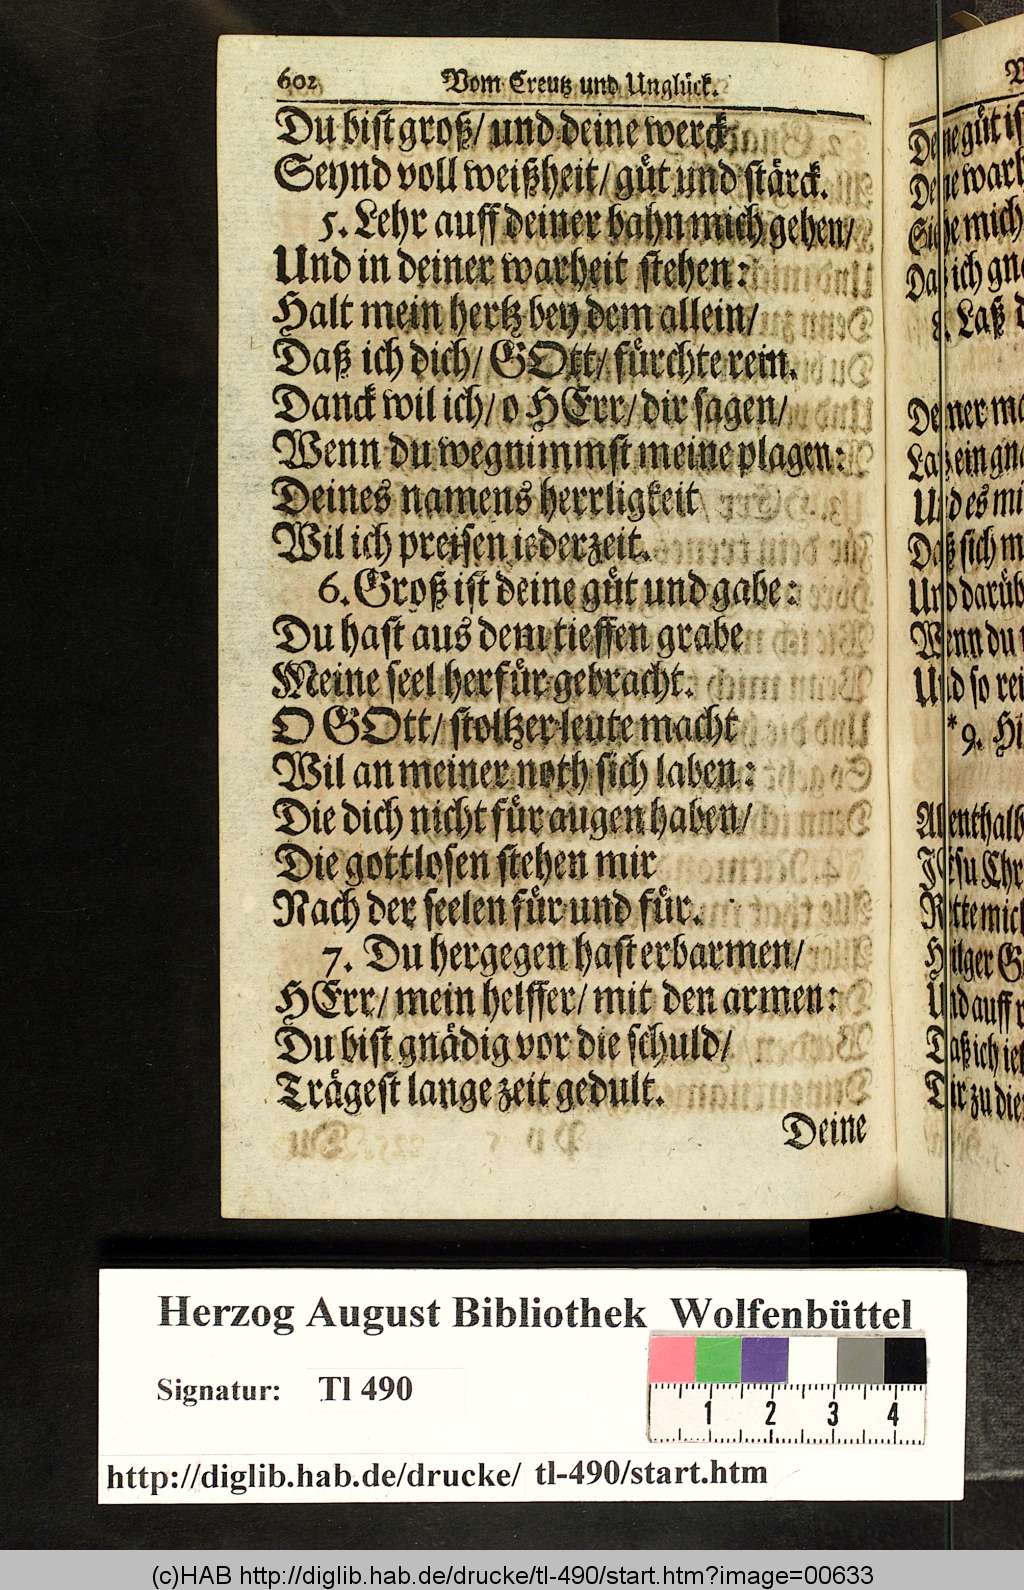 602 Vom Creutz und Unglück.
Du bist groß/ und deine werck
Seynd voll weißheit/ güt und stärck.
5. Lehr auff deiner bahn mich gehen/
Und in deiner warheit stehen:
Halt mein hertz bey dem allein/
Daß ich dich/ GOtt/ fürchte rein.
Danck wil ich/ o HErr/ dir sagen/
Wenn du wegnimmst meine plagen:
Deines namens herrligkeit
Wil ich preisen iederzeit.
6. Groß ist deine güt und gabe:
Du hast aus dem tieffen grabe
Meine seel herfür gebracht.
O GOtt/ stoltzer leute macht
Wil an meiner noth sich laben:
Die dich nicht für augen haben/
Die gottlosen stehen mir
Nach der seelen für und für.
7. Du hergegen hast erbarmen/
HErr/ mein helffer/ mit den armen:
Du bist gnädig vor die schuld/
Trägest lange zeit gedult.
Deine
güt
ich
8. Laß
ein
Und es
sich
Und
du
Und so
* 9.
JEsu
Rette
Und auff
Daß ich
Dir zu
Herzog August Bibliothek Wolfenbüttel
Signatur: Tl 490
1 2 3 4
http://diglib.hab.de/drucke/ tl-490/start.htm
(c)HAB http://diglib.hab.de/drucke/tl-490/start.htm?image=00633